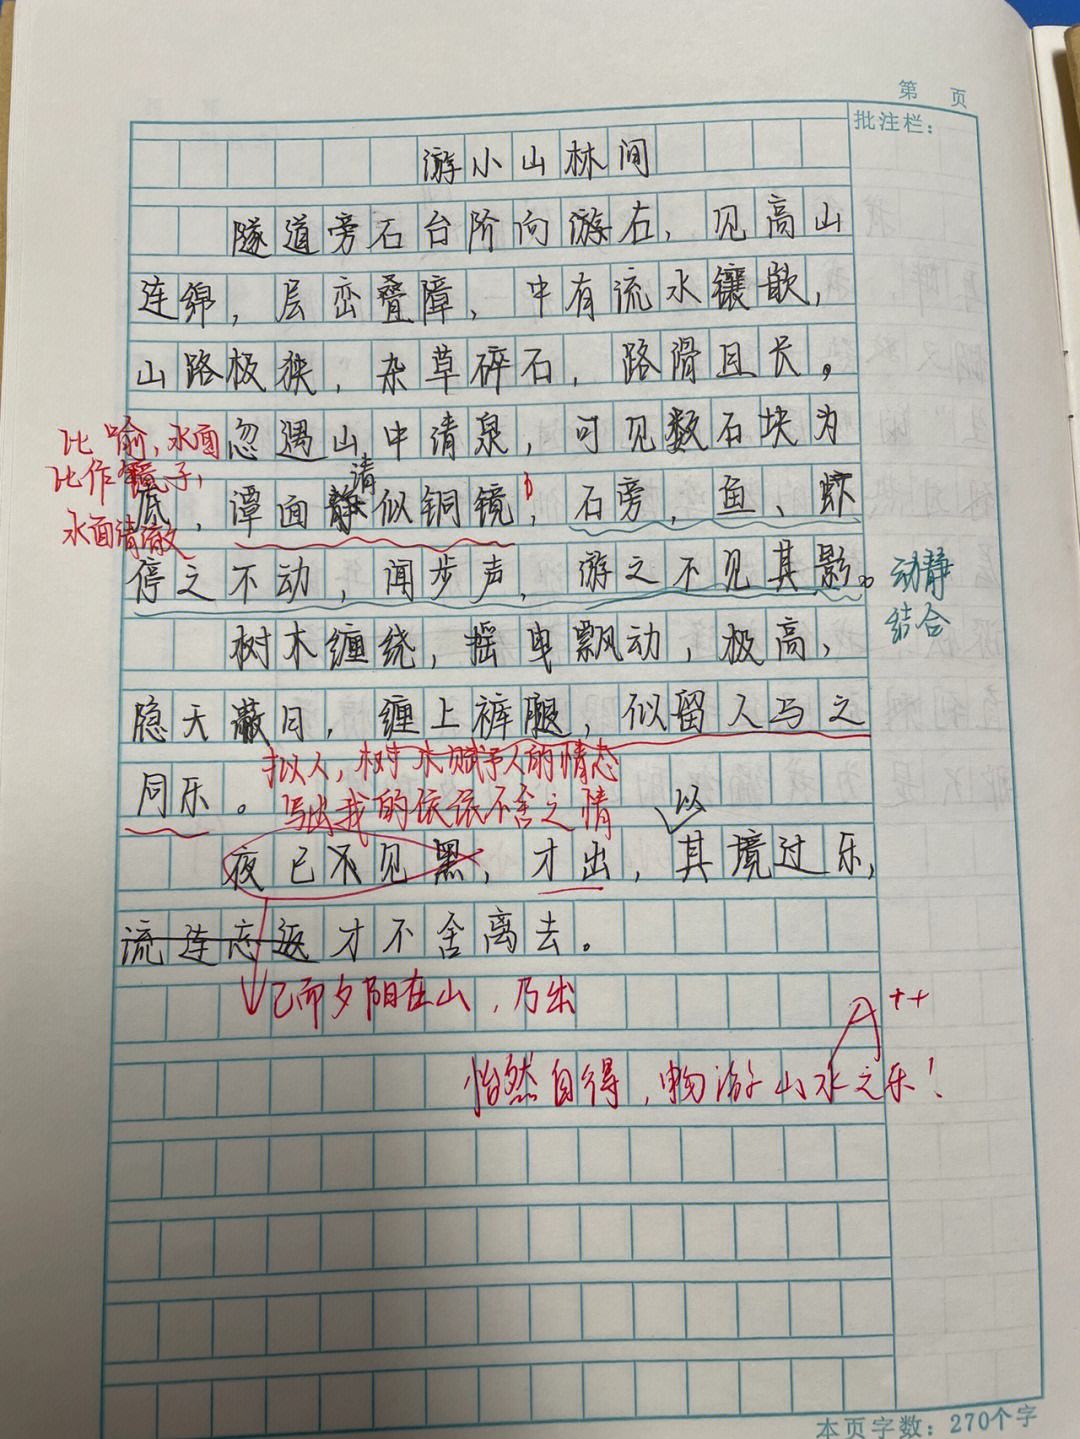 第 页
批注栏：
游小山林间
隧道旁石台阶向游右，见高山
连绵，层峦叠障，中有流水镶嵌，
山路极狭，杂草碎石，路滑且长。
忽遇山中清泉，可见数石块为
比喻，水面
比作镜子，
水面清澈
清
底，潭面静似铜镜，石旁，鱼、虾
停之不动，闻步声，游之不见其影。
动静
结合
树木缠绕，摇曳飘动，极高，
隐天蔽日，缠上裤腿，似留人与之
同乐。
拟人，树木赋予人的情态
写出我的依依不舍之情
以
夜已不见黑，才出，其境过乐，
流连忘返才不舍离去。
已而夕阳在山，乃出
A++
怡然自得，畅游山水之乐！
本页字数：270个字